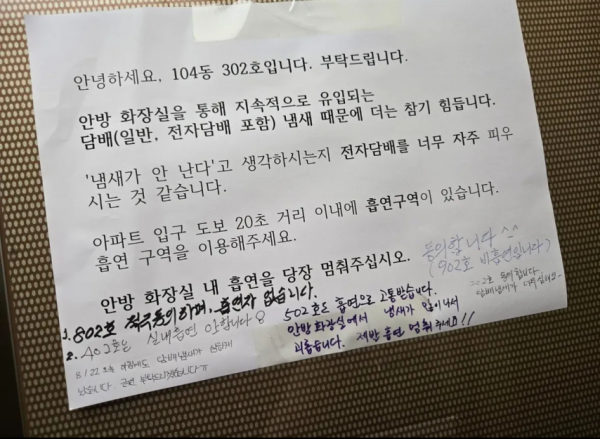 안녕하세요, 104동 302호입니다. 부탁드립니다.
안방 화장실을 통해 지속적으로 유입되는
담배(일반, 전자담배 포함) 냄새 때문에 더는 참기 힘듭니다.
'냄새가 안 난다'고 생각하시는지 전자담배를 너무 자주 피우
시는 것 같습니다.
아파트 입구 도보 20초 거리 이내에 흡연구역이 있습니다.
흡연 구역을 이용해주세요.
안방 화장실 내 흡연을 당장 멈춰주십시오.
동의합니다 ^^
(902호 비흡연입니다)
동의합니다
1. 802호 적극동의하며, 흡연자 없습니다.
2. 402호는 실내흡연 안합니다
8/22 에도 담배냄새가
부탁드리겠습니다 ㅠ
502호도 흡연으로 고통받습니다.
안방 화장실에서 냄새가 많이 나서
괴롭습니다. 제발 흡연 멈춰주세요!!